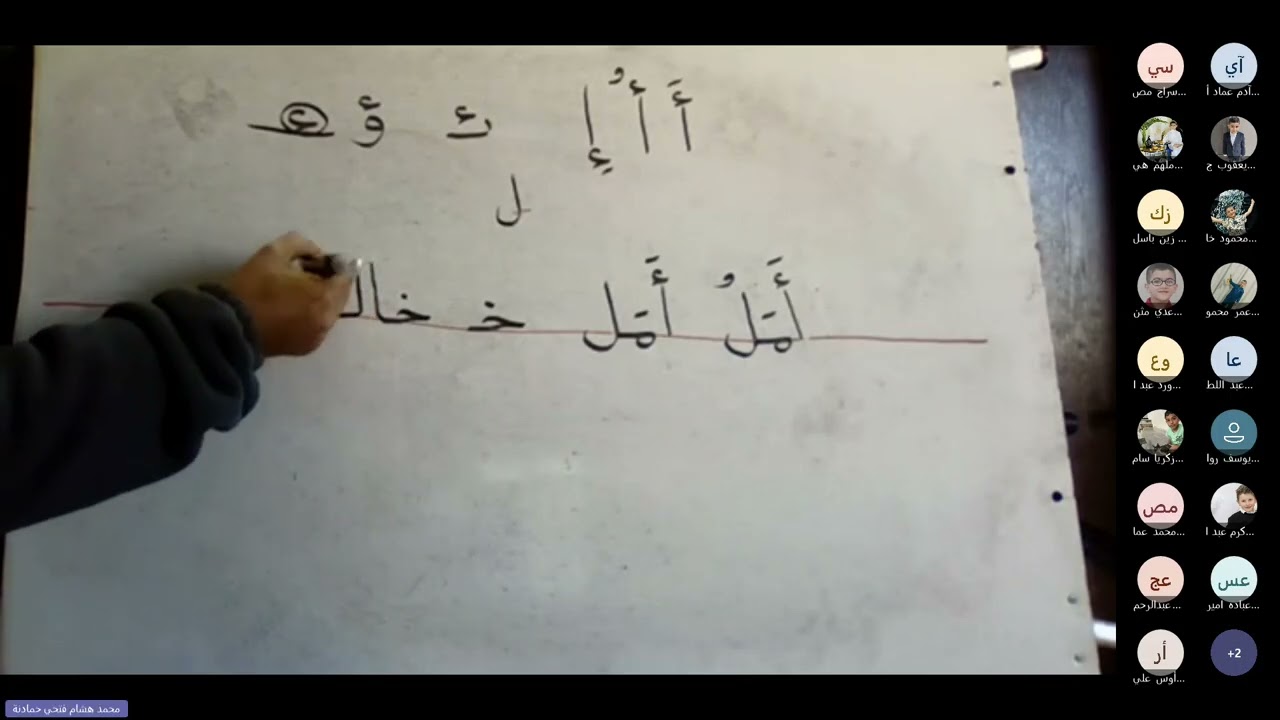 أَ أُ إِ ئـ ؤ ء
ل
أَمَلُ أَمَل خـ خالـ
سي
آي
سراج مص...
آدم عماد أ...
ملهم هي...
يعقوب ج...
زك
زين باسل...
محمود خا...
عدي مثن...
عمر محمو...
وع
عا
ورد عبد ا...
عبد اللط...
زكريا سام...
يوسف روا...
مص
محمد عما...
كرم عبد ا...
عج
عس
عبدالرحم...
عبادة امير...
أر
+2
أوس علي...
محمد هشام فتحي حمادنة